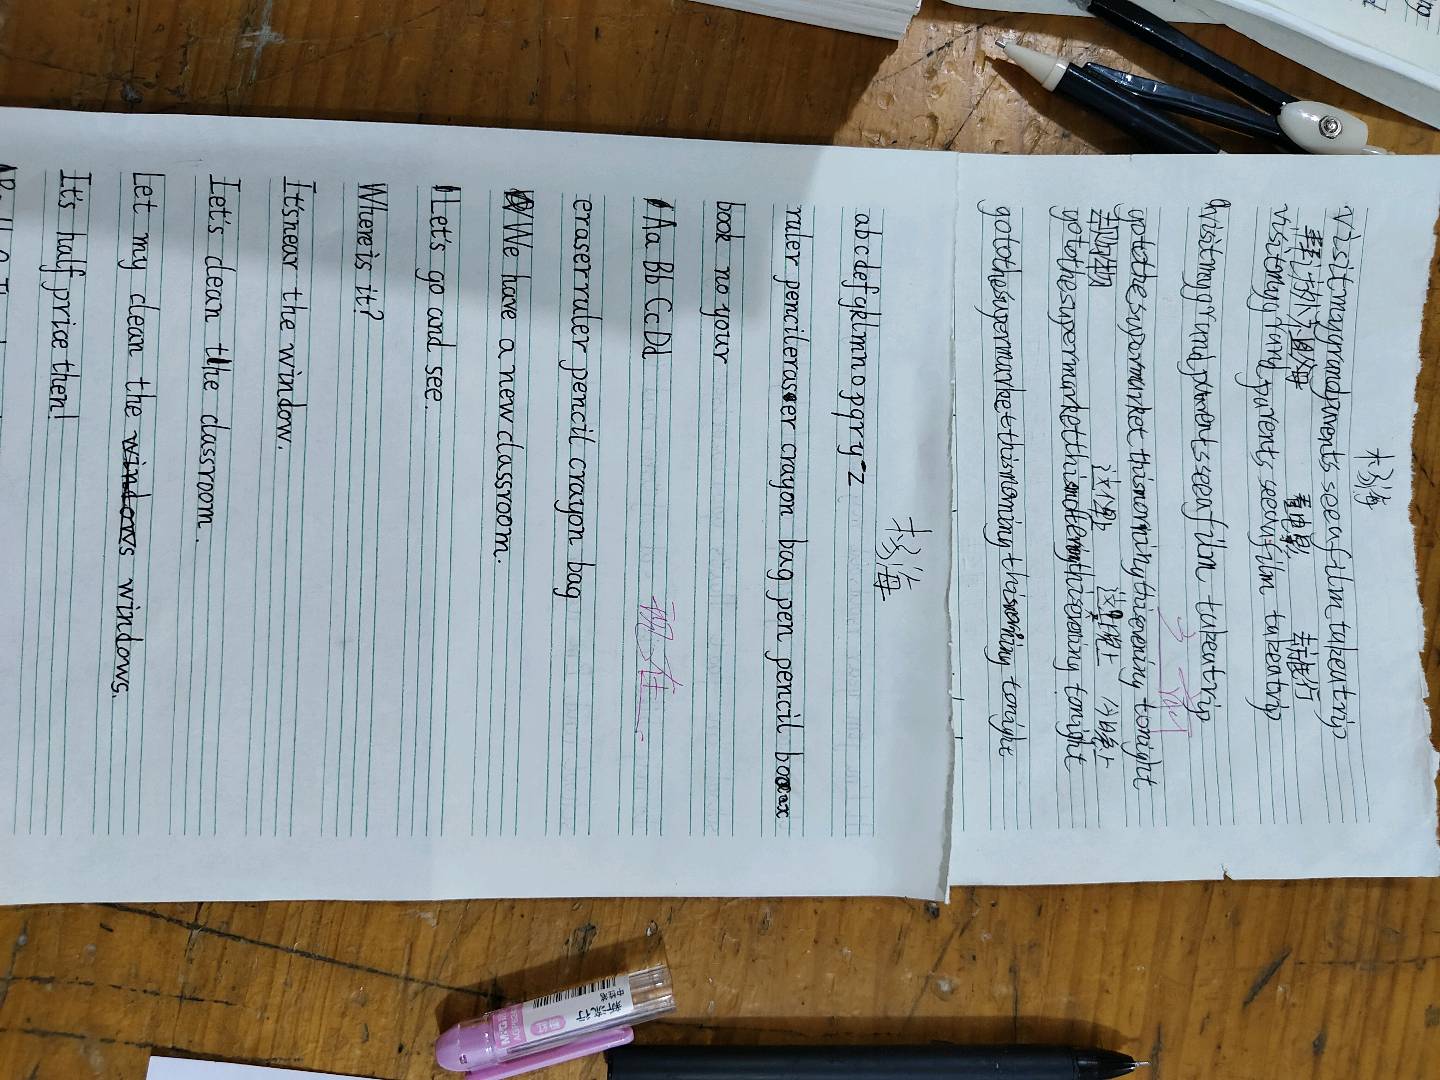 杉海
visitmygrandparents seeafilm taketrip
看望外祖父母 看电影 去旅行
visitmygrandparents seeafilm takeatrip
visitmygrandparentsseeafilm takeatrip
gotothesupermarket thismorningthisevening tonight
去购物 这个早上 这个晚上 今晚上
gotothesupermarketthismorningthisevening tonight
gotothesupermarketthismorning thisevening tonight
杉海
abcdefgklmnopqryz
ruler pencileraser crayon bag pen pencil box
book no your
Aa Bb Cc Dd
eraserruler pencil crayon bag
We have a new classroom.
Let's go and see.
Where is it?
It's near the window.
Let's clean the classroom.
Let my clean the windows windows.
It's half price then!
M&G
新流行
中性笔